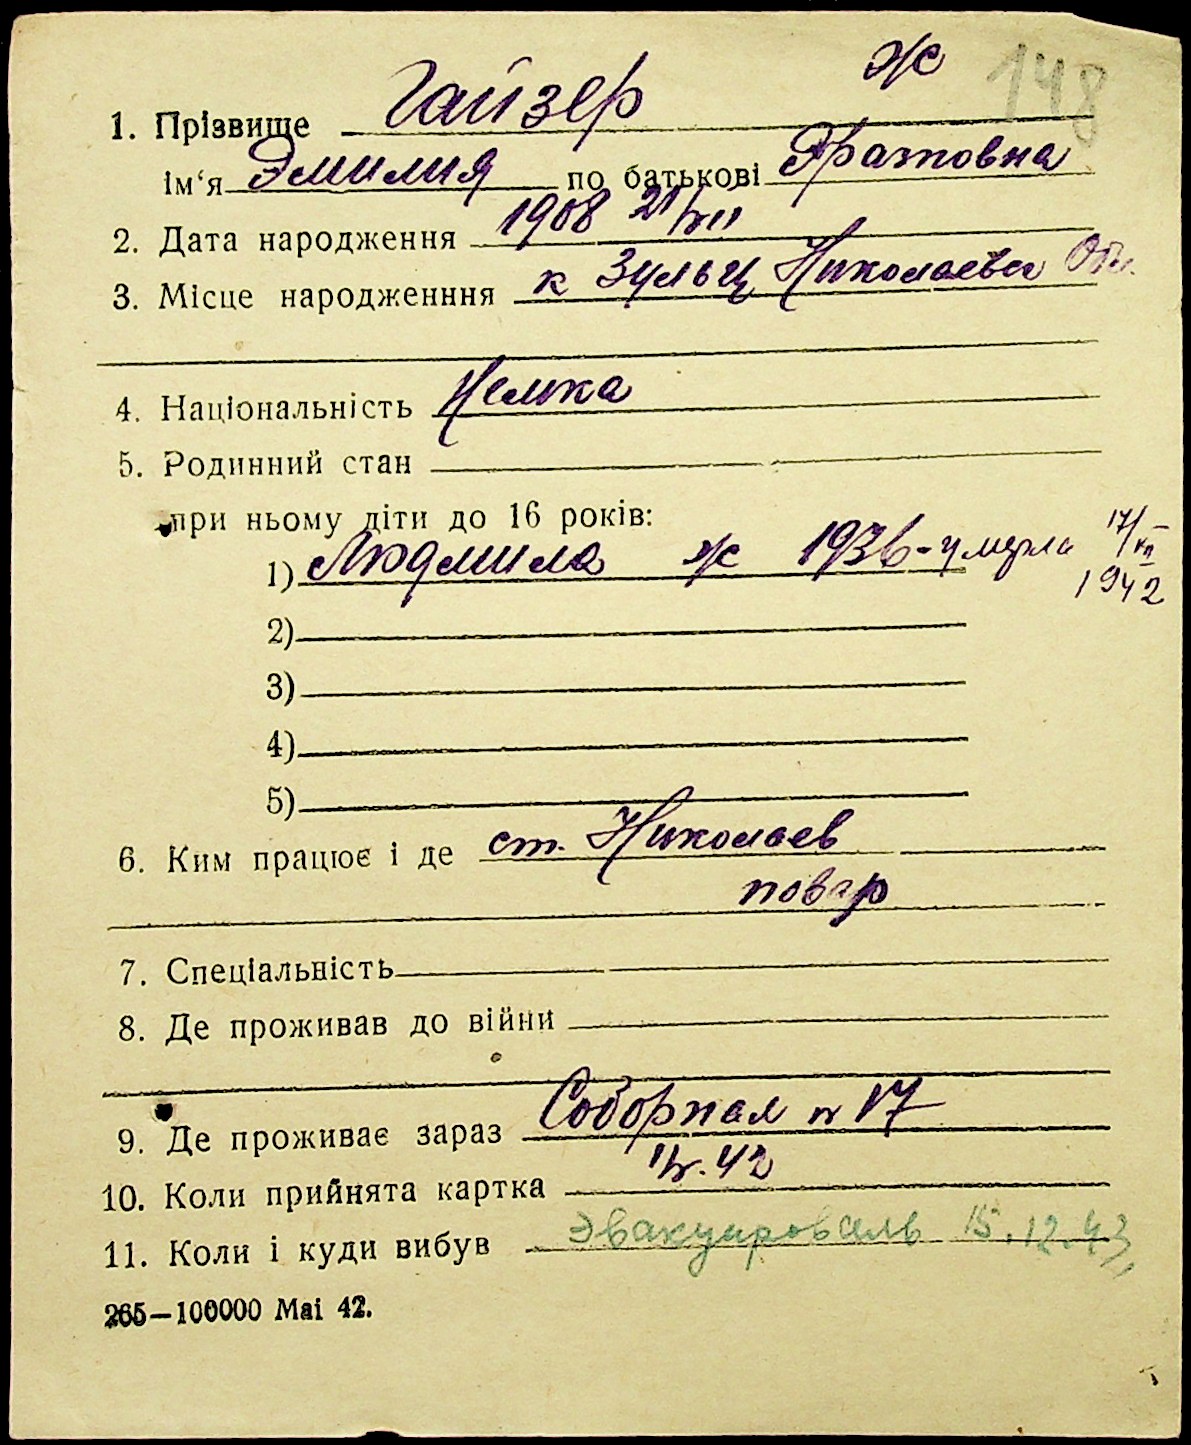 ж 148
1. Прізвище Гайзер
ім‘я Эмилия по батькові Фратовна
2. Дата народження 1908 21/VII
3. Місце народженння к Зульц Николаевск Обл.
4. Національність Немка
5. Родинний стан
при ньому діти до 16 років:
1) Людмила ж 1936 - умерла 17/ 1942
2)
3)
4)
5)
6. Ким працює і де ст. Николаев
повар
7. Спеціальність
8. Де проживав до війни
9. Де проживає зараз Соборная n 17
10. Коли прийнята картка 42
11. Коли і куди вибув Эвакуироваль 15.12.43
265—100000 Mai 42.